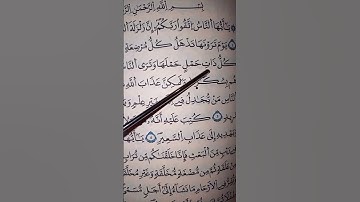 بِسْمِ اللَّهِ الرَّحْمَٰنِ الرَّ
يَا أَيُّهَا النَّاسُ اتَّقُوا رَبَّكُمْ إِنَّ زَلْزَلَةَ ال
يَوْمَ تَرَوْنَهَا تَذْهَلُ كُلُّ مُرْضِعَةٍ
كُلُّ ذَاتِ حَمْلٍ حَمْلَهَا وَتَرَى النَّا
هُم بِسُكَٰرَىٰ وَلَٰكِنَّ عَذَابَ اللَّهِ
النَّاسِ مَن يُجَٰدِلُ فِي بِغَيْرِ عِلْمٍ وَ
كُتِبَ عَلَيْهِ أَنَّهُ
هْدِيهِ إِلَىٰ عَذَابِ السَّعِيرِ ۝٤ يَا أَيُّ
مِّنَ الْبَعْثِ فَإِنَّا خَلَقْنَٰكُم مِّن تُرَابٍ
ثُمَّ مِن مُّضْغَةٍ مُّخَلَّقَةٍ وَغَيْرِ مُخَلَّقَ
فِي الْأَرْحَامِ مَا نَشَاءُ إِلَىٰ أَجَلٍ مُّسَمًّى